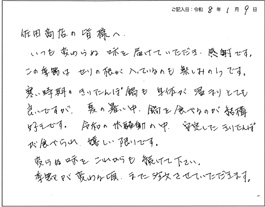 ご記入日:令和 8年 1月 9日
佐田商店の皆様へ
いつも変わらぬ味を届けていただき、感謝です。
この季節はせりの根が入っているのも楽しみの1つです。
寒い時期のきりたんぽ鍋も身体が温まりとても
良いですが、夏の暑い中、鍋を食べるのが結構
好きです。令和の米騒動の中、安定したきりたんぽ
が食べられ、嬉しい限りです。
変わらぬ味をこれからも続けて下さい。
季節が変わる頃、またお取り寄せさせていただきます。